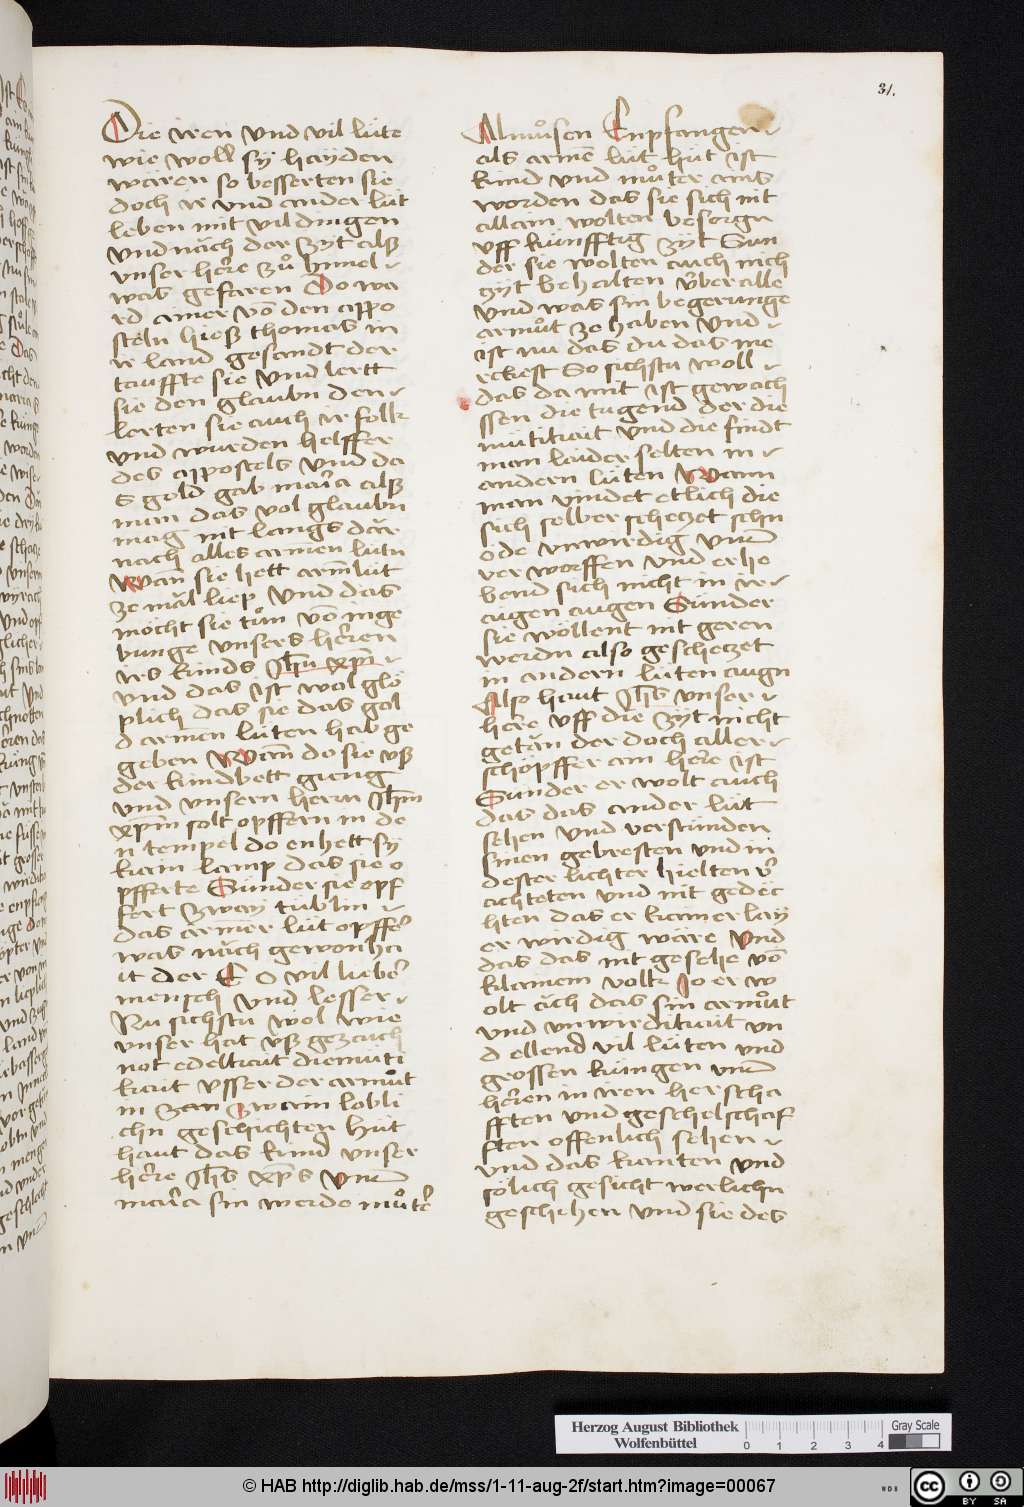 31.
Die iren vnd vil lüte
wie woll sÿ haÿden
wären so besserten sie
doch ir vnd ander lüt
leben mit vil dingen
vnd näch der zÿt alß
vnser herre zů himel
was gefaren Do wa
rd ainer võ den appo
steln hieß thomas in
ir land gesandt der
tauffte sie vnd lertt
sie den glaubn den
lerten sie auch ir folk
vnd wurden helffer
des appostels vnd da
s gold gab maria alß
man das vol glaubn
mag nit langs där
nach alles armen lütn
Wann sie hett arm lüt
ze mäl liep vnd das
möcht sie tůn võ inge
bunge vnsers herren
irs kinds Jhũ xp̃i
vnd das ist wol glö
plich das sie das gol
d armen lüten hab ge
geben Wann do sie vß
der kindbett gieng
vnd vnsern herrn Jhm
xpm̃ solt opffern in de
n tempel do enhett sÿ
kain lamp das sie o
pfferte Sunder sie opf
fert zwaÿ tublin
das armer lüt opffer
was näch gewonha
it der E O vil lieber
mensch vnd lesser
Nu sichstu wol wie
vnser hat vß gezauch
not edeltait diemüti
kait vsser der armůt
in zan zwain lobli
chn geschichten Hüt
haut das kind vnser
herre Jhs xp̃s vnd
maria sin werde můter
Almůsen Enpfangen
als arme lüt hüt ist
kind vnd můter ains
worden das sie sich nit
allain wolten besorgn
vff künfftig zÿt Sun
der sie wolten auch nich
tzit behalten vber alle
vnd was sin begerunge
armůt ze haben vnd
ist nu das du das me
rckest So sichstu woll
das da mit ist gewach
ssen die tugend der die
mütikait vnd die findt
man laider selten in
andern lüten Wann
man vindet etlich die
sich selber schetzet schn
öde vnwirdig vnd
ver worffen vnd erhe
bend sich nicht in ir
aigen augen Sunder
sie wöllent nit geren
werdn also geschetzet
in andern lüten augn
Also haut Jhs vnser
herre vff die zÿt nicht
getän der doch aller
schöpffer ain herre ist
Sunder er wolt auch
das das ander lüt
sehen vnd verstünden
sinen gebresten vnd in
dester lichter hielten vñ
achteten vnd nit gedec
hten das er kainerlaÿ
er wirdig wäre Vnd
das das nit geschehe võ
klainem volk Jo er w
olt äch das sin armůt
vnd vnwirdikait vn
d ellend vil lüten vnd
grossen küngen vnd
herren in iren herscha
fften vnd geschelschaf
ften offenlich sehen
vnd das kunten vnd
sölich gesicht werlichn
geschehen vnd sie des
Herzog August Bibliothek
Wolfenbüttel
0 1 2 3 4
Gray Scale
© HAB http://diglib.hab.de/mss/1-11-aug-2f/start.htm?image=00067
WDB
cc BY SA